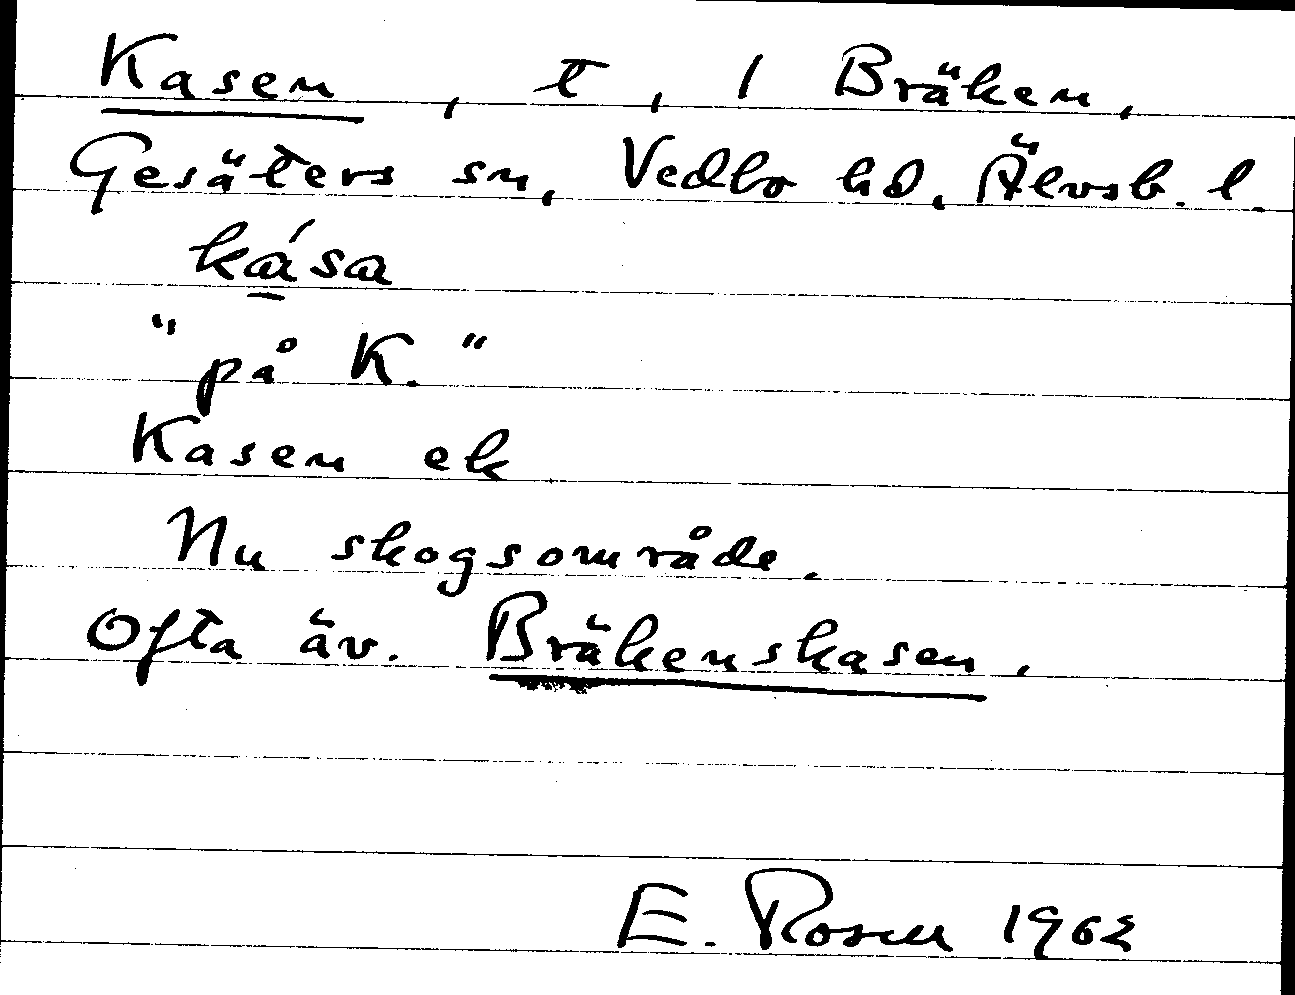 Kasen, t, 1 Bräken,
Gesäters sn, Vedbo hd, Älvsb. l.
ká̱sa
"på K."
Kasen ek
Nu skogsområde.
Ofta äv. Bräkenskasen.
E. Rosen 1962